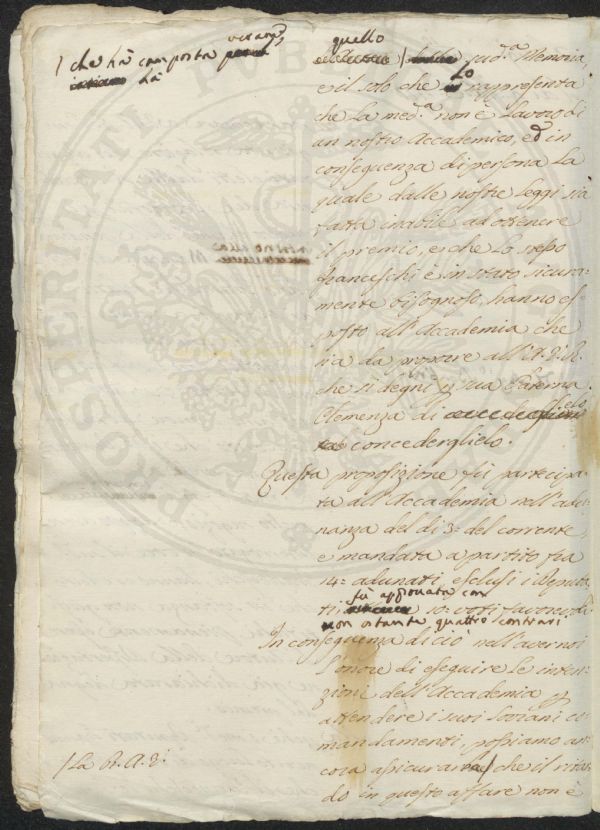 / che hà composta
hà
quello
/ sud.ª Memoria,
e il solo che Lo rappresenta
che La med.ª non è Lavoro di
un nostro Accademico, ed in
conseguenza di persona La
quale dalle nostre Leggi sia
fatta inabile ad ottenere
il premio, e che Lo stesso
Franceschi è in stato sicura-
mente bisognoso, hanno es-
posto all'Accademia che
sia da propore all'A. V. R.
che si degni p sua Paterna
Clemenza di
concederglielo.
Questa proposizione fù partecipa-
ta all'Accademia nell'adu-
nanza del dì 3: del corrente,
e mandata a partito fra
14: adunati, esclusi i Deputa-
fù approvata con
ti, 10: voti favorevoli
non ostante quattro contrari
In conseguenza di ciò nell'avere noi
L'onore di eseguire Le inten-
zioni dell'Accademia, e
attendere i suoi Sovrani co-
mandamenti, possiamo an-
cora assicurar / che il ritar-
do in questo affare non è
/ La R. A. V.
PROSPERITATI PUBLICAE